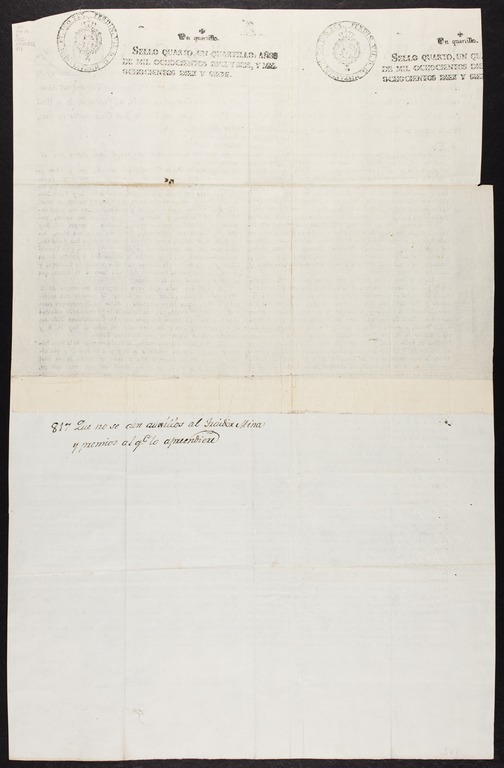 Un quartillo.
SELLO QUARTO, UN QUARTILLO; AÑOS
DE MIL OCHOCIENTOS DIEZ Y SEIS, Y MIL
OCHOCIENTOS DIEZ Y SIETE.
Un quartillo.
SELLO QUARTO, UN QUA
DE MIL OCHOCIENTOS DIE
OCHOCIENTOS DIEZ Y SIET
817 Que no se den auxilios al Traidor Mina
y premios al qᵉ lo aprendiere